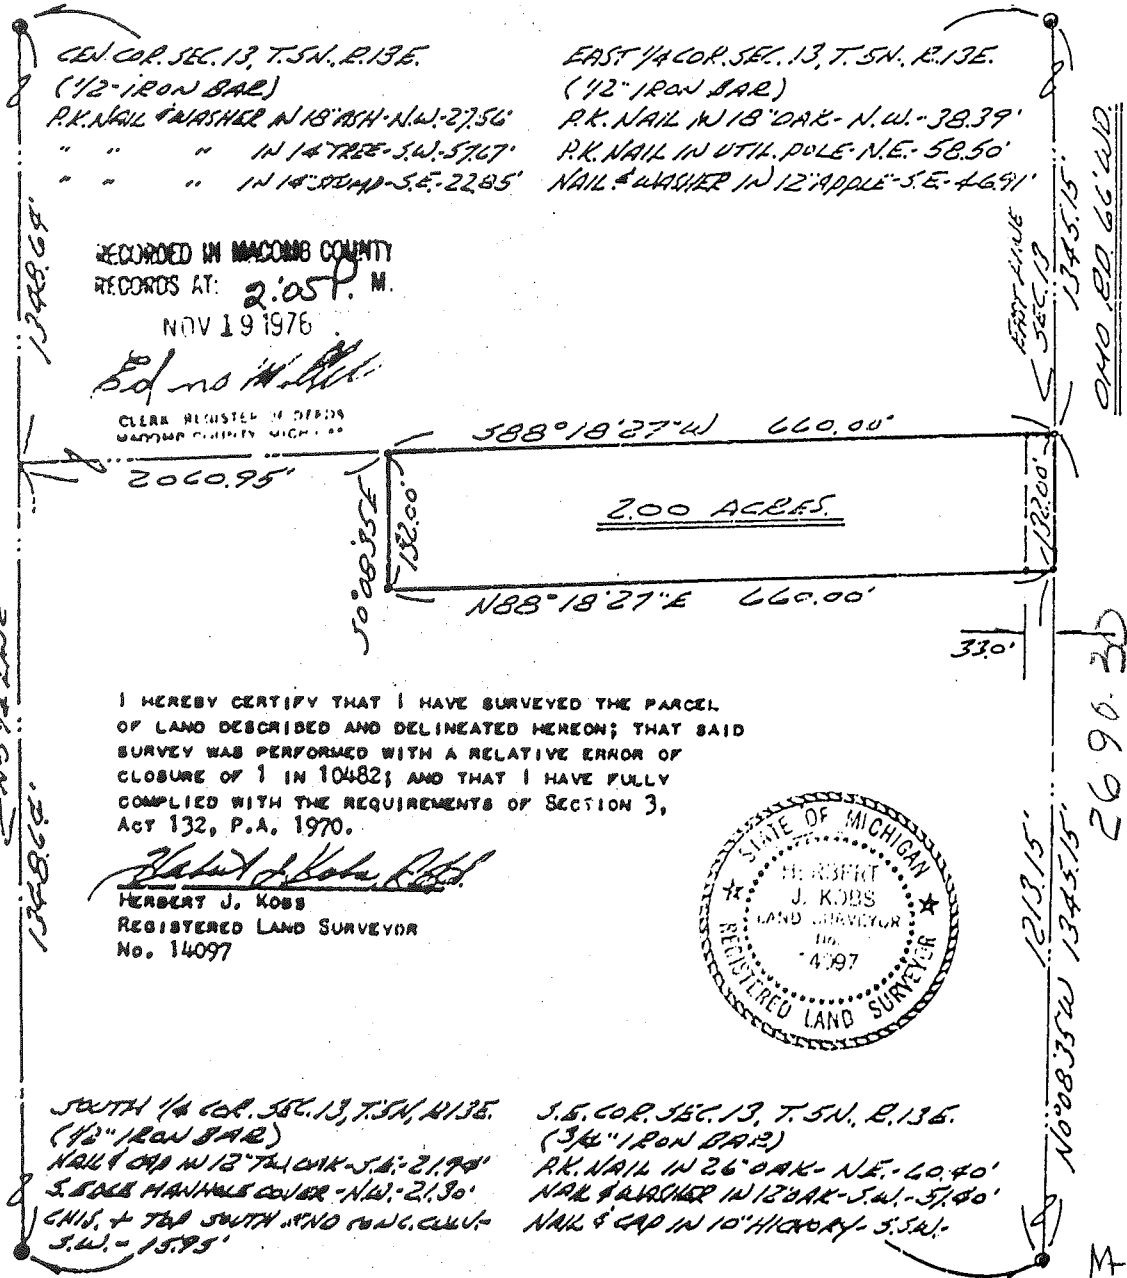 CEN. COR. SEC. 13, T.5N., R.13E.
(1/2" IRON BAR)
P.K. NAIL & WASHER IN 18" ASH-N.W.-27.56'
" " " IN 14" TREE-S.W.-57.67'
" " " IN 14" STUMP-S.E.-22.85'
EAST 1/4 COR. SEC. 13, T.5N., R.13E.
(1/2" IRON BAR)
P.K. NAIL IN 18" OAK- N.W.-38.39'
P.K. NAIL IN UTIL. POLE-N.E.-58.50'
NAIL & WASHER IN 12" APPLE-S.E.-46.91'
1348.64'
RECORDED IN MACOMB COUNTY
RECORDS AT: 2:05 P. M.
NOV 19 1976
CLERK REGISTER OF DEEDS
MACOMB COUNTY MICHIGAN
EAST LINE
SEC. 13
1345.15'
OMO RD. 66' WD.
S88°18'27"W 660.00'
2060.95'
S0°08'35"E
132.00'
2.00 ACRES.
132.00'
N88°18'27"E 660.00'
33.0'
I HEREBY CERTIFY THAT I HAVE SURVEYED THE PARCEL
OF LAND DESCRIBED AND DELINEATED HEREON; THAT SAID
SURVEY WAS PERFORMED WITH A RELATIVE ERROR OF
CLOSURE OF 1 IN 10482; AND THAT I HAVE FULLY
COMPLIED WITH THE REQUIREMENTS OF SECTION 3,
ACT 132, P.A. 1970.
HERBERT J. KOBS
REGISTERED LAND SURVEYOR
No. 14097
STATE OF MICHIGAN
HERBERT
J. KOBS
LAND SURVEYOR
No.
14097
REGISTERED LAND SURVEYOR
1348.64'
1213.15'
N0°08'35"W 1345.15'
2690.30
SOUTH 1/4 COR. SEC. 13, T.5N., R.13E.
(1/2" IRON BAR)
NAIL & CAP IN 12" OAK-S.E.-21.94'
S. EDGE MANHOLE COVER-N.W.-21.30'
CHIS. + TOP SOUTH END CONC. CULV.-
S.W.- 15.95'
S.E. COR. SEC. 13, T.5N., R.13E.
(3/4" IRON BAR)
P.K. NAIL IN 26" OAK- N.E.-60.40'
NAIL & WASHER IN 12" OAK-S.W.-51.40'
NAIL & CAP IN 10" HICKORY-S.S.W.-